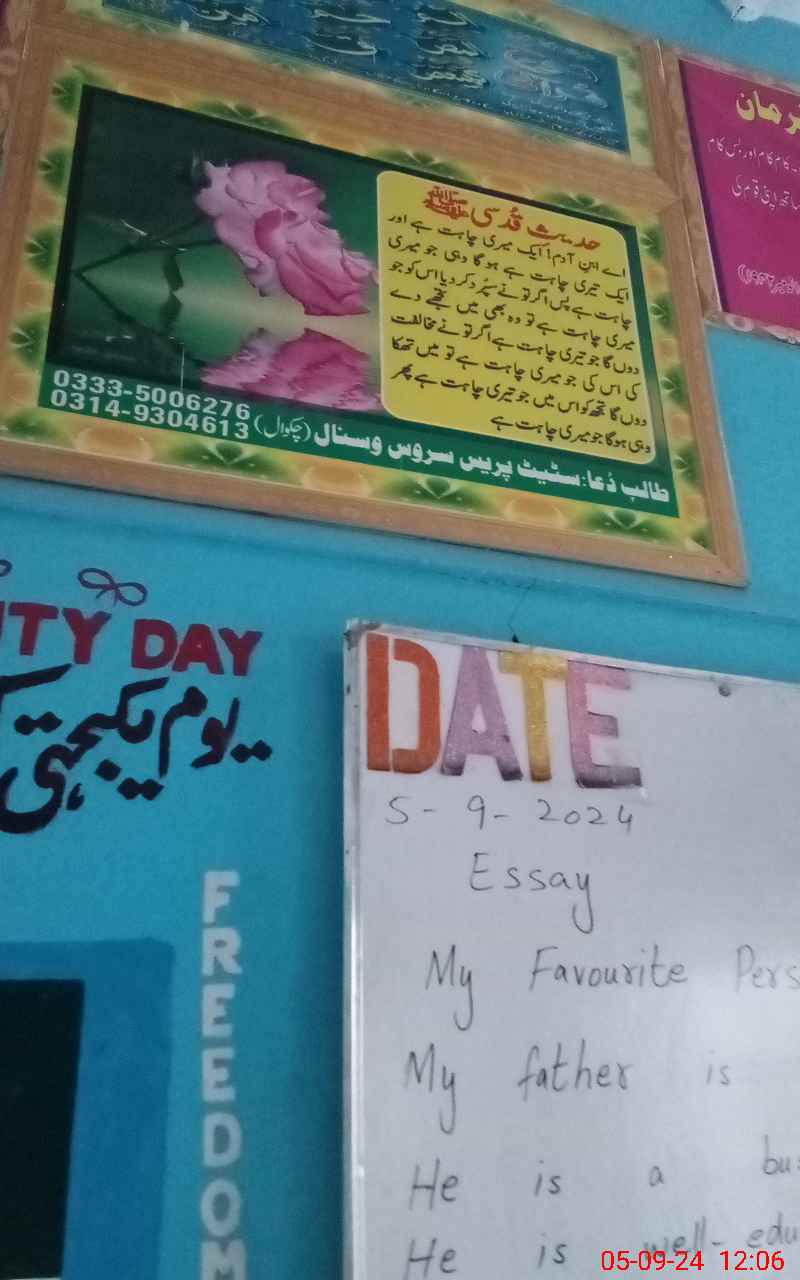 فرمان
کام کام اور بس کام
حدیث قدسی ﷺ
اے ابن آدم! ایک میری چاہت ہے اور
ایک تیری چاہت ہے ہوگا وہی جو میری
چاہت ہے پس اگر تو نے سپرد کر دیا اس کو جو
میری چاہت ہے تو وہ بھی میں تجھے دے
دوں گا جو تیری چاہت ہے اگر تو نے مخالفت
کی اس کی جو میری چاہت ہے تو میں تھکا
دوں گا تجھ کو اس میں جو تیری چاہت ہے پھر
وہی ہوگا جو میری چاہت ہے
0333-5006276
0314-9304613
طالب دُعا: سٹیٹ پریس سروس وسنال (چکوال)
ITY DAY
یوم یکجہتی
FREEDOM
DATE
5-9-2024
Essay
My Favourite Pers
My father is
He is a bus
He is well-edu
05-09-24 12:06